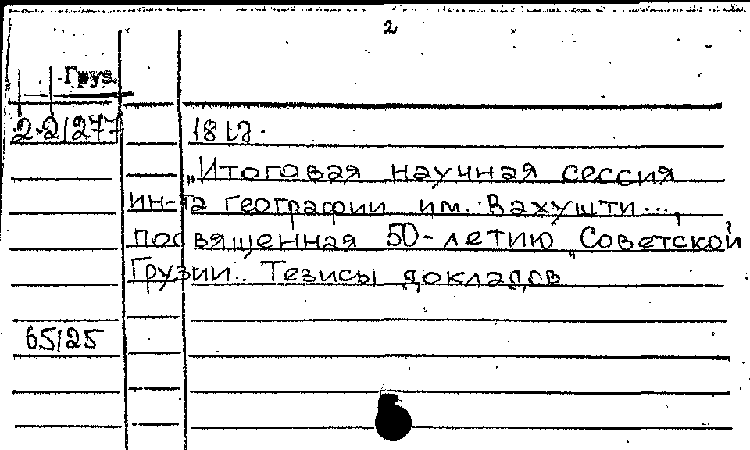 2
Груз.
2-2/277
„Итоговая научная сессия
ин-та географии им. Вахушти...,
посвященная 50-летию „Советской
Грузии". Тезисы докладов
65/25